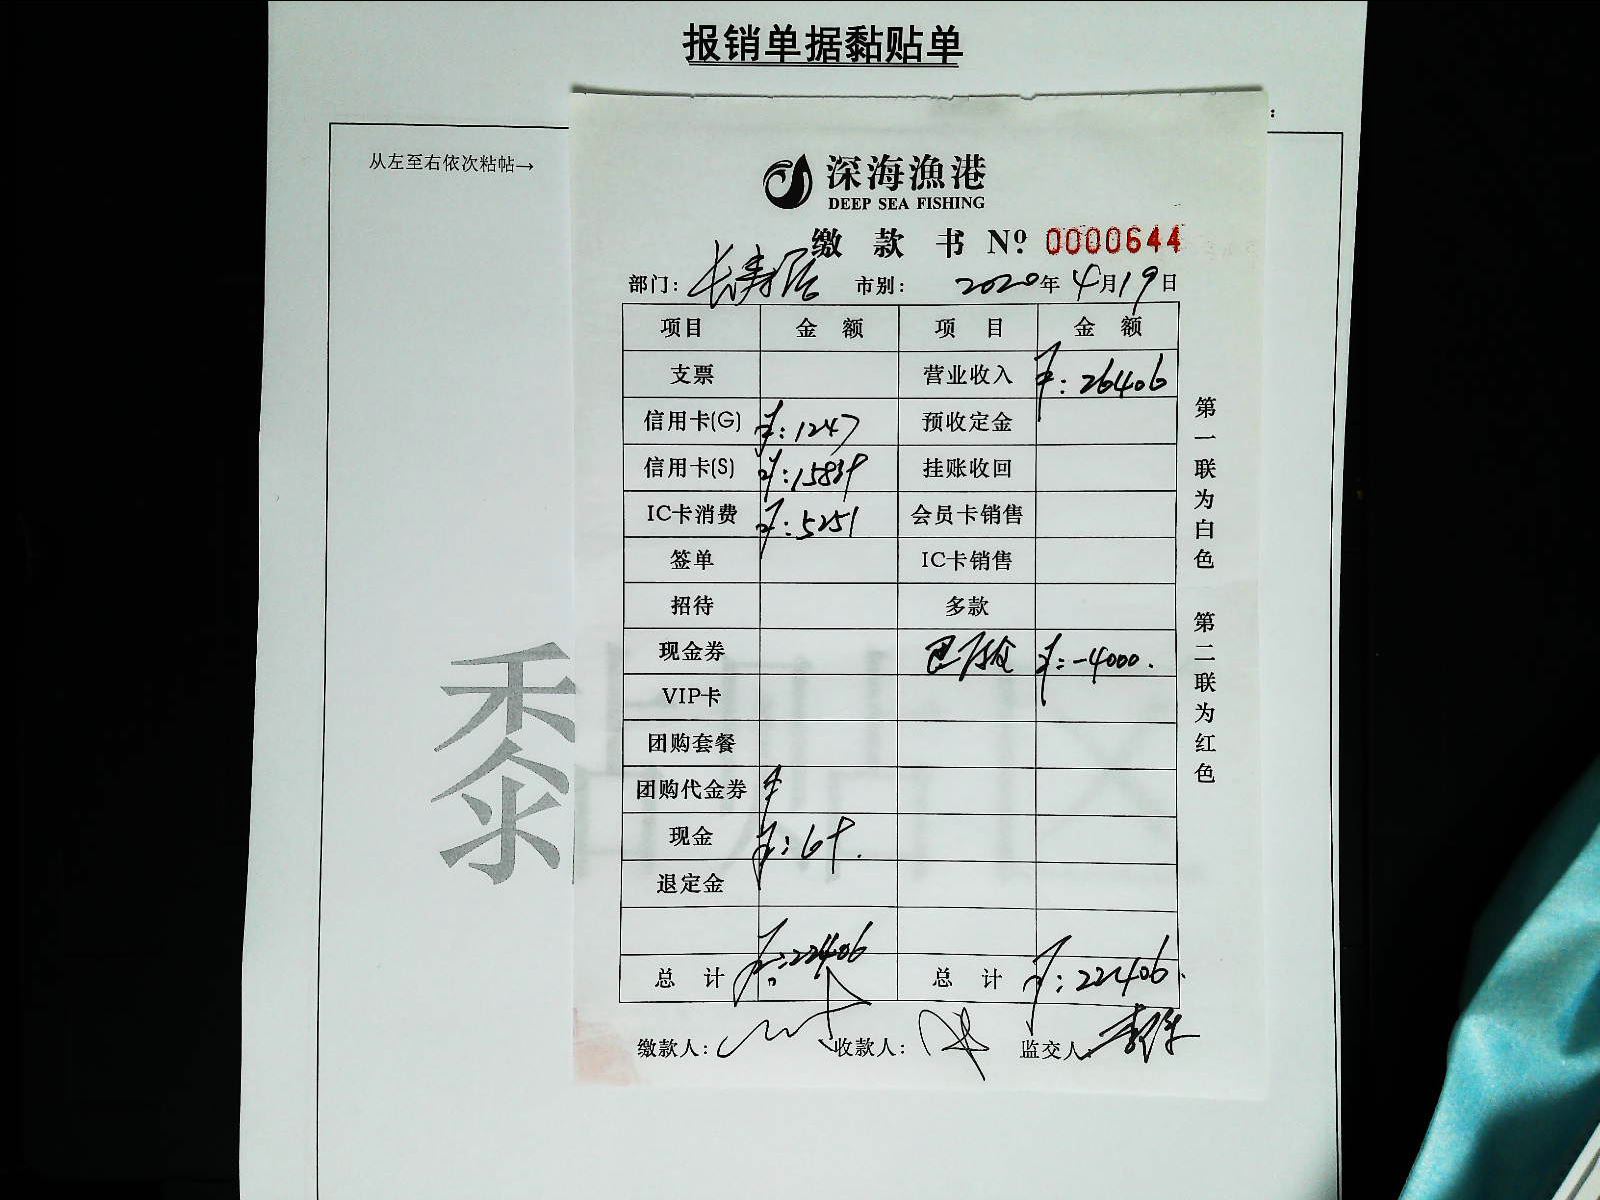 报销单据黏贴单
从左至右依次粘帖→
深海漁港
DEEP SEA FISHING
缴款书 Nº 0000644
部门: 长寿店 市别: 2020年4月19日
项目 金额 项目 金额
支票 营业收入 ¥:26406
信用卡(G) ¥:1247 预收定金
信用卡(S) ¥:15839 挂账收回
IC卡消费 ¥:5251 会员卡销售
签单 IC卡销售
招待 多款
现金券 ¥:-4000.
VIP卡
团购套餐
团购代金券
现金 ¥:69.
退定金
总计 ¥:22406 总计 ¥:22406.
缴款人: 收款人: 监交人:
第一联为白色 第二联为红色
黍